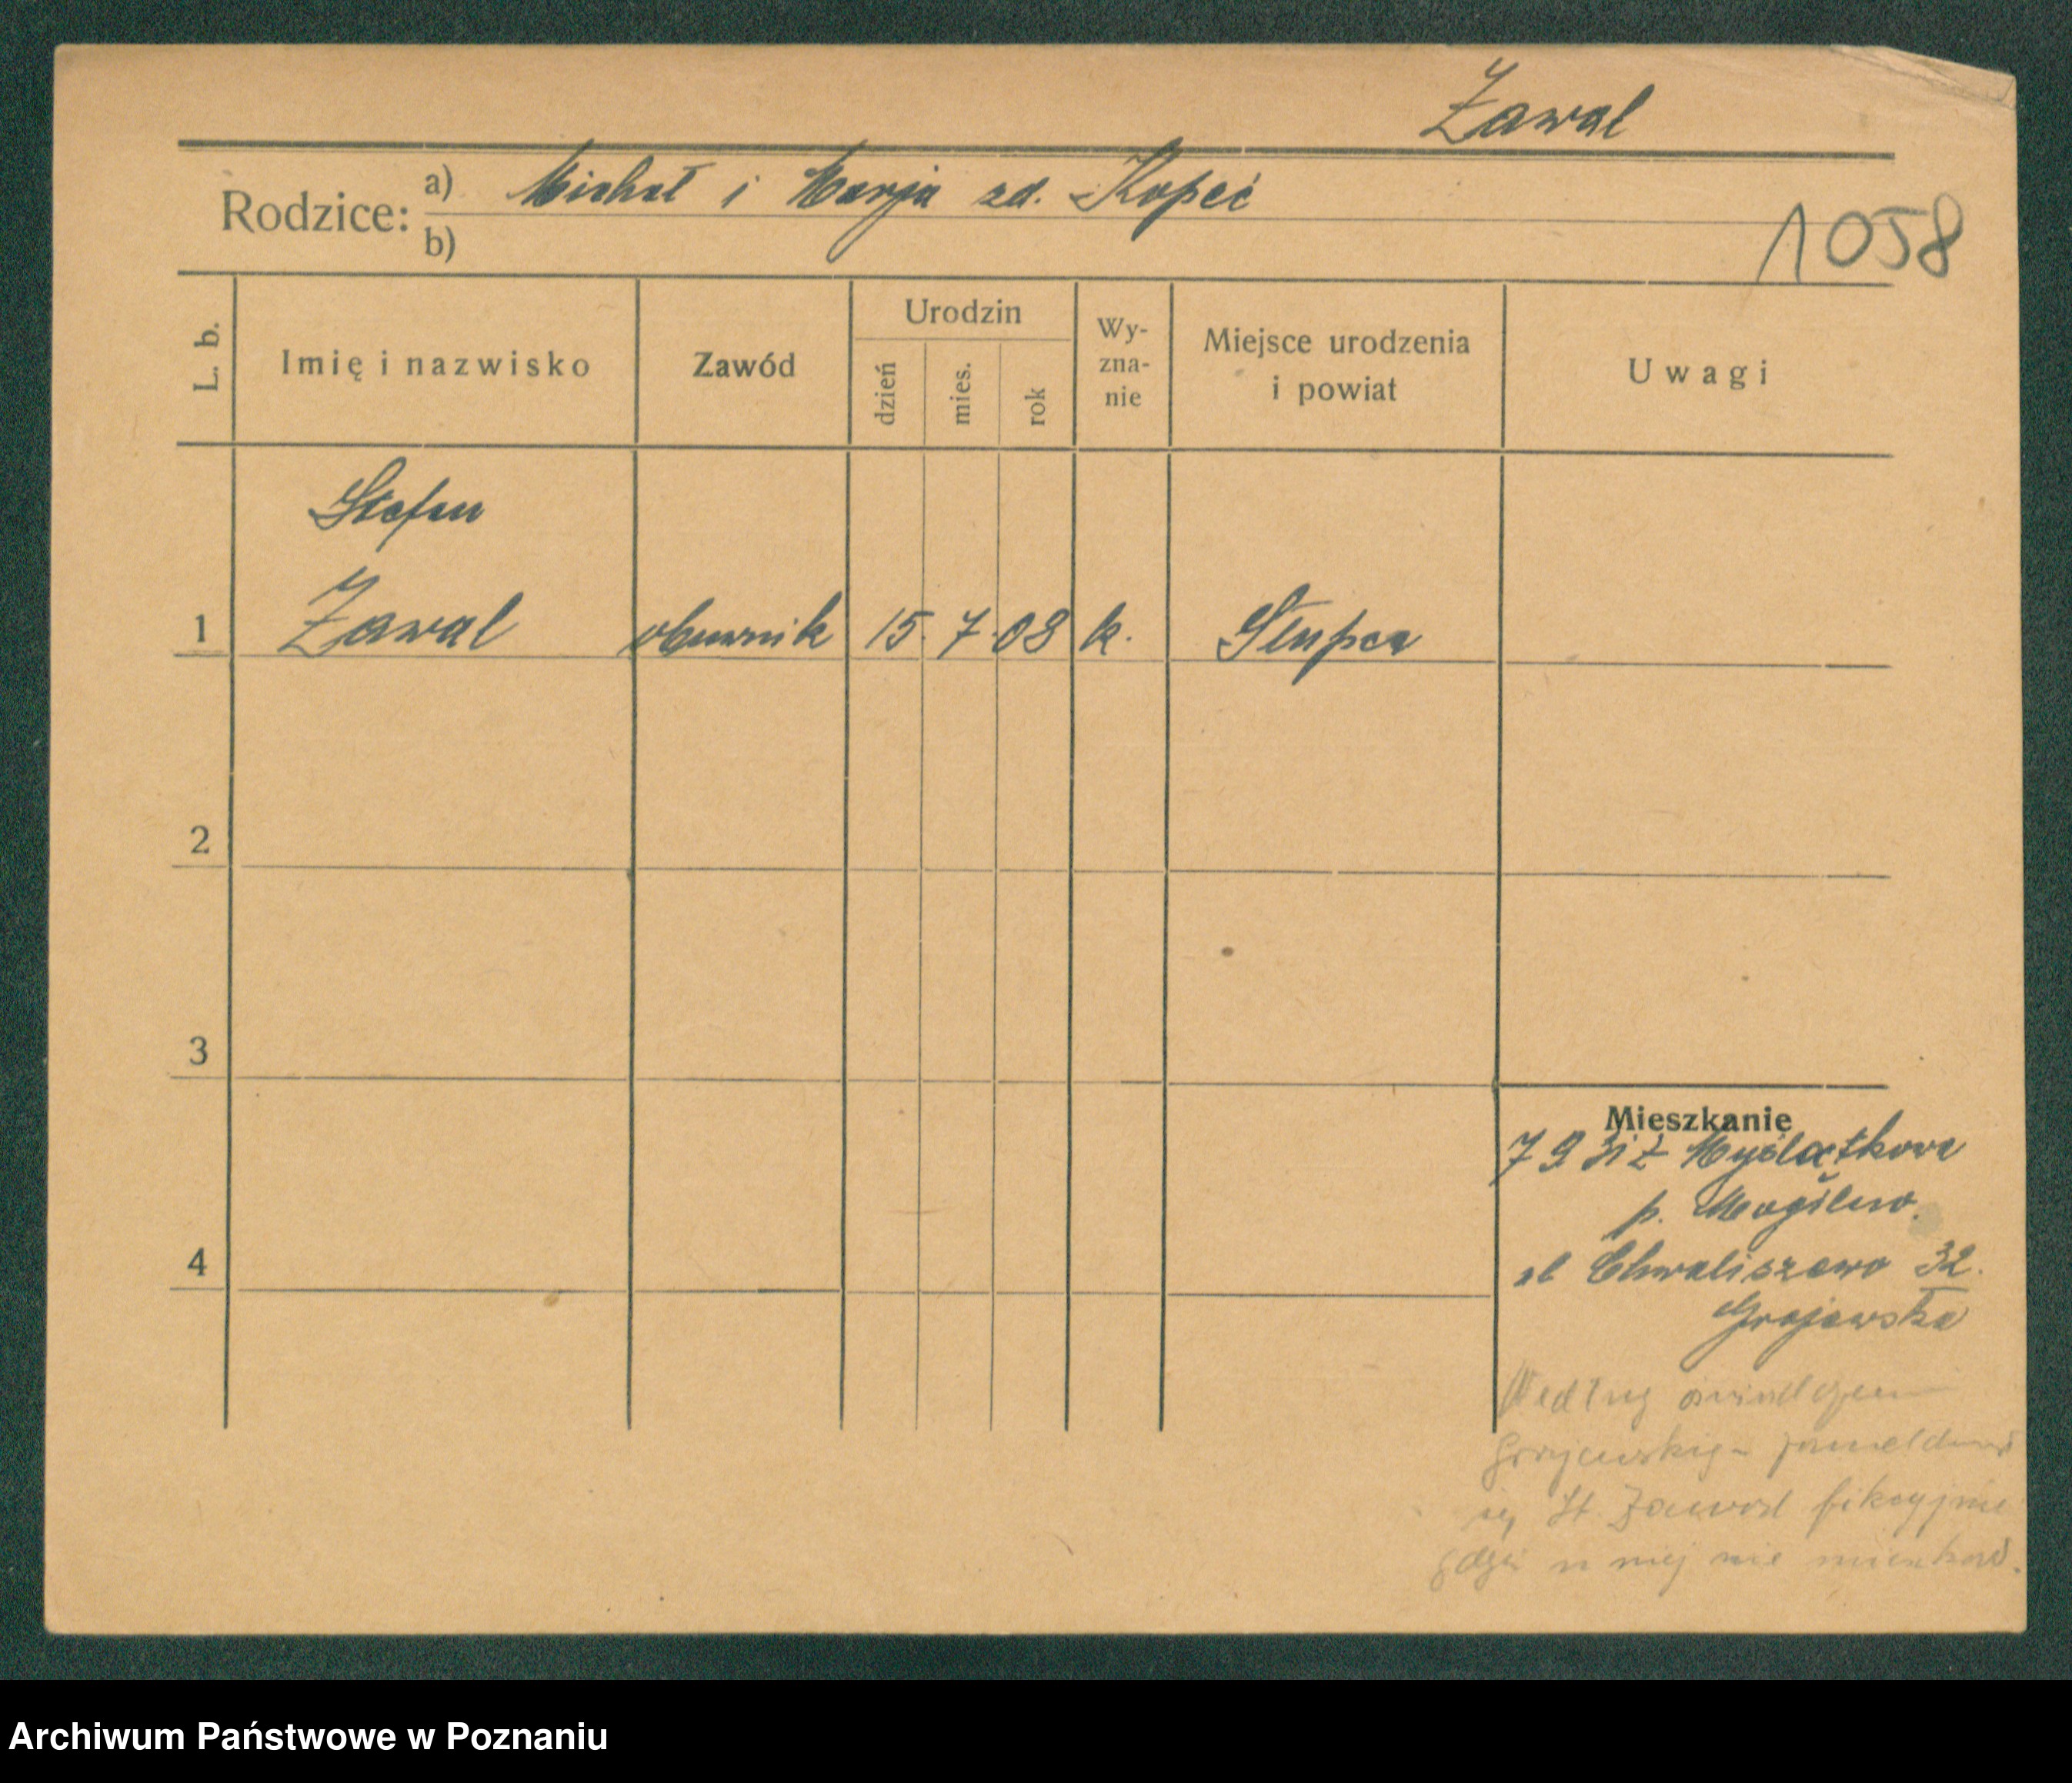 Zawal
Rodzice: a) Michał i Marja zd. Kopeć
b)
1058
L. b.
Imię i nazwisko
Zawód
Urodzin
dzień
mies.
rok
Wy-
zna-
nie
Miejsce urodzenia
i powiat
Uwagi
Stefan
1 Zawal obuwnik 15. 7. 08 k. Słupca
2
3
4
Mieszkanie
7 9 31 z Myślątkowa
p. Mogilno.
ul Chwaliszewo 32.
Grajewska
Według
się St. Zawal fikcyjnie
gdyż u niej nie mieszkał.
Archiwum Państwowe w Poznaniu